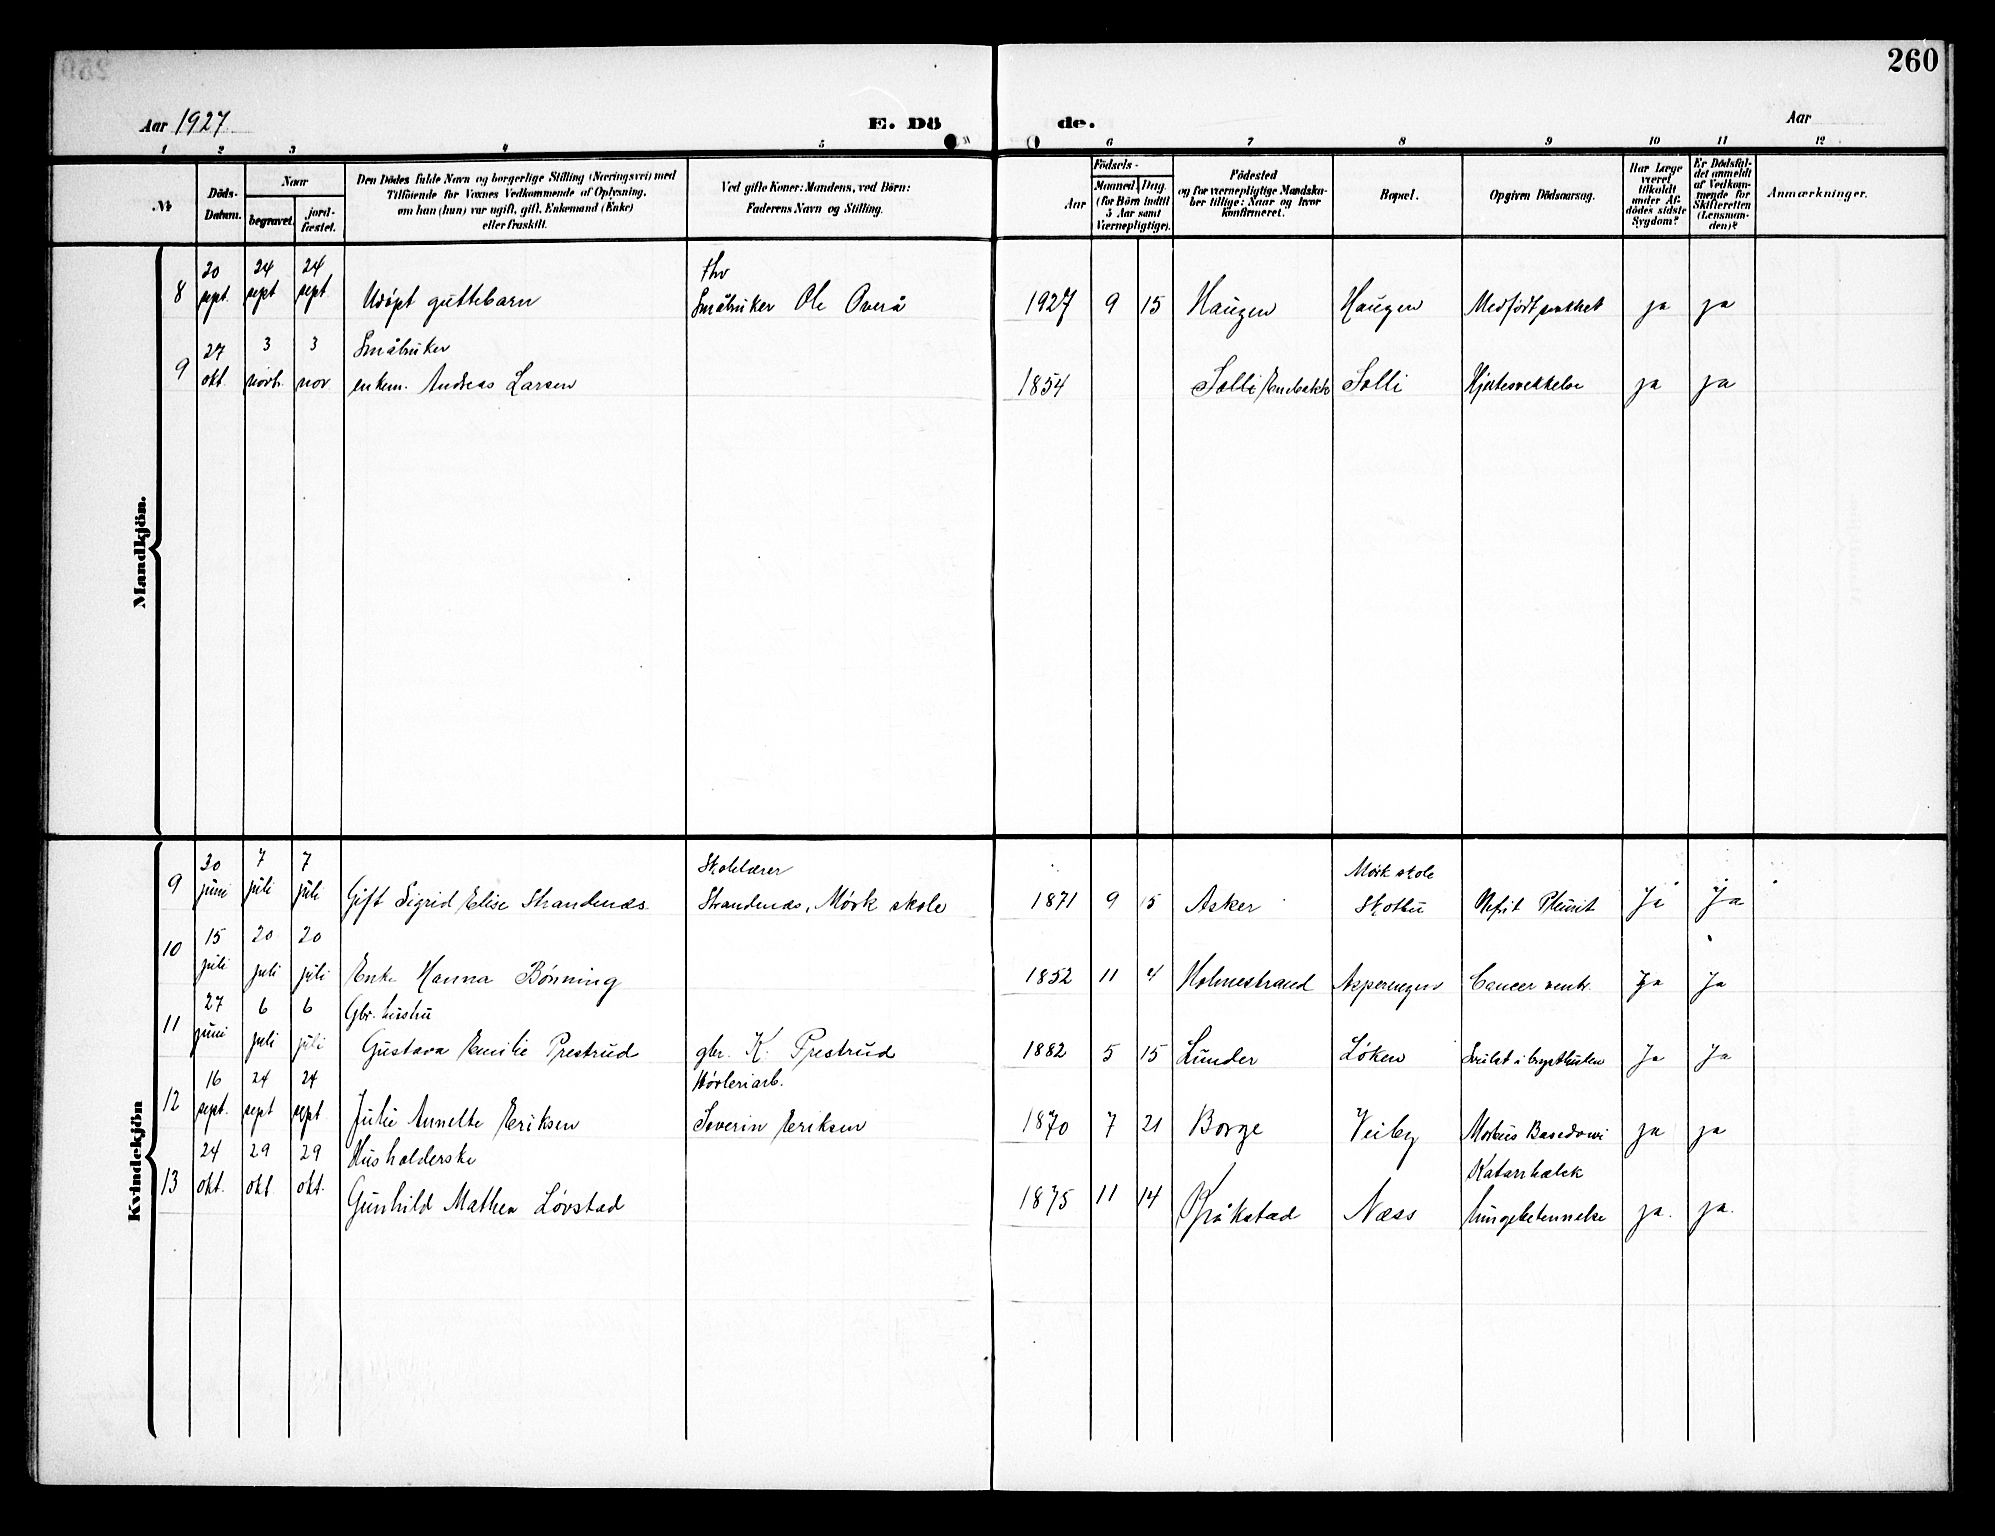 260
Aar 1927
E. Dö de.
Aar
1 2 3 4 5 6 7 8 9 10 11 12
№
Döds-Datum.
Naar
begravet.
jordfæstet.
Den Dödes fulde Navn og borgerlige Stilling (Næringsvei) med
Tilföiende for Voxnes Vedkommende af Oplysning,
om han (hun) var ugift, gift, Enkemand (Enke)
eller fraskilt.
Ved gifte Koner: Mandens, ved Börn:
Faderens Navn og Stilling.
Födsels-
Aar
Maaned. Dag.
(for Börn indtil
5 Aar samt
Værnepligtige).
Födested
og for værnepligtige Mandskaber tillige: Naar og hvor
konfirmeret.
Bopæl.
Opgiven Dödsaarsag.
Har Læge
været
tilkaldt
under Afdödes sidste
Sygdom?
Er Dödsfaldet anmeldt
af Vedkommende for
Skifteretten
(Lensmanden)?
Anmærkninger.
Mandkjön.
8 20 sept. 24 sept 24 sept Udöpt guttebarn
Småbruker Ole Overå 1927 9 15 Haugen Haugen ja ja
9 27 okt. 3 novb. 3 nov Småbruker
enkem. Andreas Larsen 1854 Solli Solli Hjertesvekkelse ja ja
Kvindekjön
9 30 juni 7 juli 7 juli Gift Sigrid Elise Strandenæs
Skolelærer
Strandenæs, Mørk skole 1871 9 5 Asker Mørk skole
Skotbu Nefrit Pleurit Ja Ja
10 15 juli 20 juli 20 juli Enke Hanna Bönning 1852 11 4 Holmestrand Cancer ventr. Ja Ja
11 27 juni 6 juli 6 juli Gbr. hustru
Gustava Emilie Prestrud gbr. K. Prestrud 1882 5 15 Lunder Løken Svulst i brysthulen Ja Ja
12 16 sept. 24 sept 24 sept Julie Annette Eriksen
Høvleriarb.
Severin Eriksen 1870 7 21 Borge Veiby Morbus Basedowi ja ja
13 24 okt. 29 okt. 29 okt. Husholderske
Gunhild Mathea Løvstad 1875 11 14 Kråkstad Næss Katarrhalsk
lungebetennelse ja. ja.